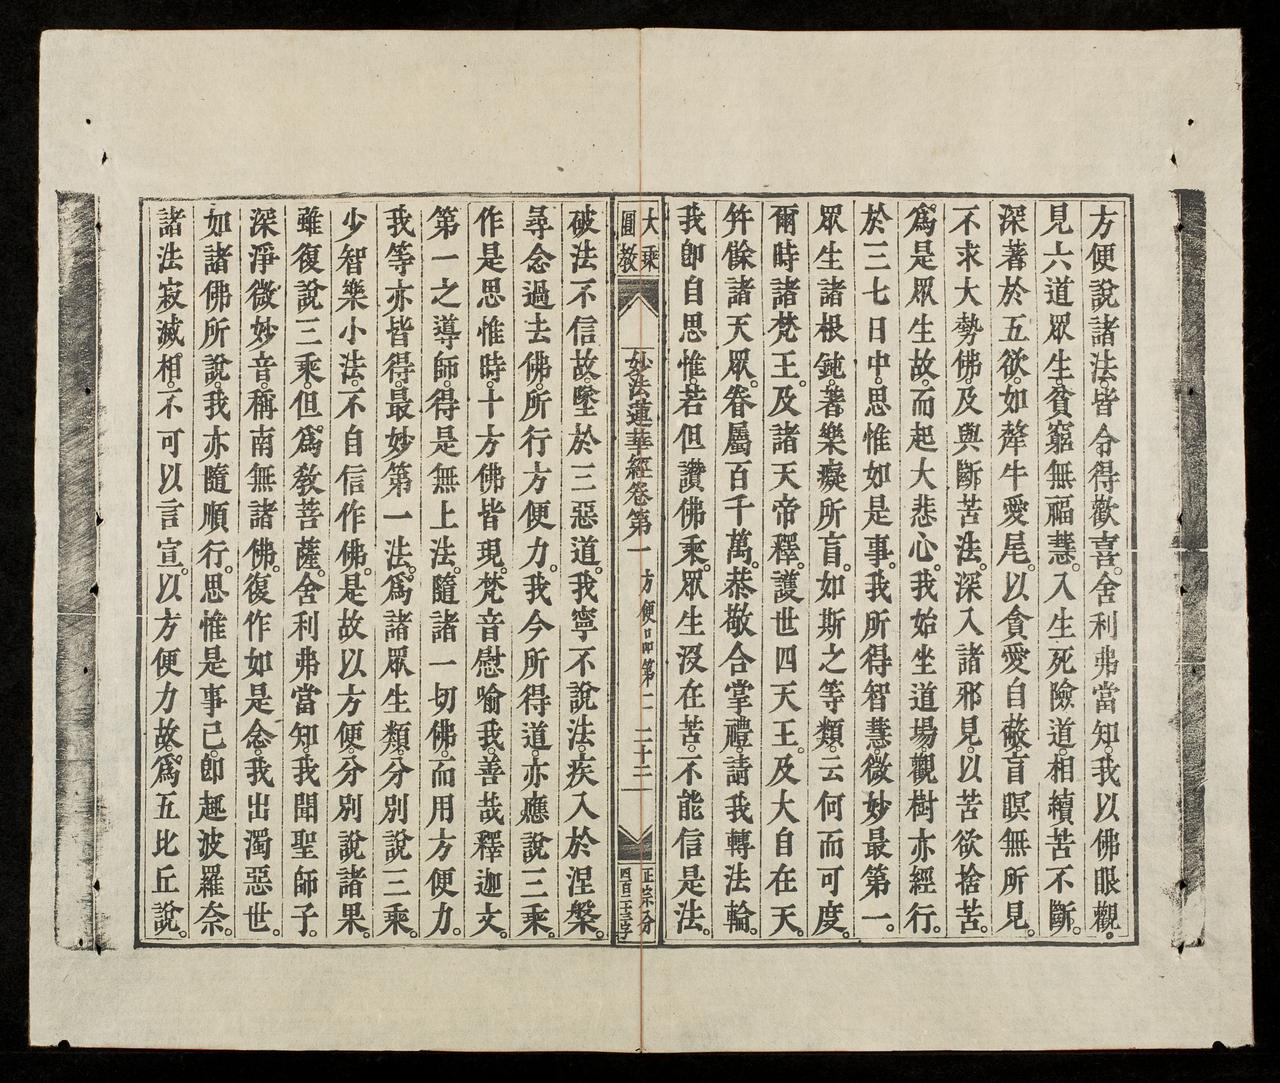 方便說諸法。皆令得歡喜。舍利弗當知。我以佛眼觀。
見六道眾生。貧窮無福慧。入生死險道。相續苦不斷。
深著於五欲。如犛牛愛尾。以貪愛自蔽。盲瞑無所見。
不求大勢佛。及與斷苦法。深入諸邪見。以苦欲捨苦。
爲是眾生故。而起大悲心。我始坐道場。觀樹亦經行。
於三七日中。思惟如是事。我所得智慧。微妙最第一。
眾生諸根鈍。著樂癡所盲。如斯之等類。云何而可度。
爾時諸梵王。及諸天帝釋。護世四天王。及大自在天。
幷餘諸天眾。眷屬百千萬。恭敬合掌禮。請我轉法輪。
我即自思惟。若但讚佛乘。眾生沒在苦。不能信是法。
大乘
圓教
妙法蓮華經卷第一 方便品第二 二十三
正宗分
破法不信故。墜於三惡道。我寧不說法。疾入於涅槃。
尋念過去佛。所行方便力。我今所得道。亦應說三乘。
作是思惟時。十方佛皆現。梵音慰喻我。善哉釋迦文。
第一之導師。得是無上法。隨諸一切佛。而用方便力。
我等亦皆得。最妙第一法。爲諸眾生類。分別說三乘。
少智樂小法。不自信作佛。是故以方便。分別說諸果。
雖復說三乘。但爲教菩薩。舍利弗當知。我聞聖師子。
深淨微妙音。稱南無諸佛。復作如是念。我出濁惡世。
如諸佛所說。我亦隨順行。思惟是事已。即趣波羅奈。
諸法寂滅相。不可以言宣。以方便力故。爲五比丘說。